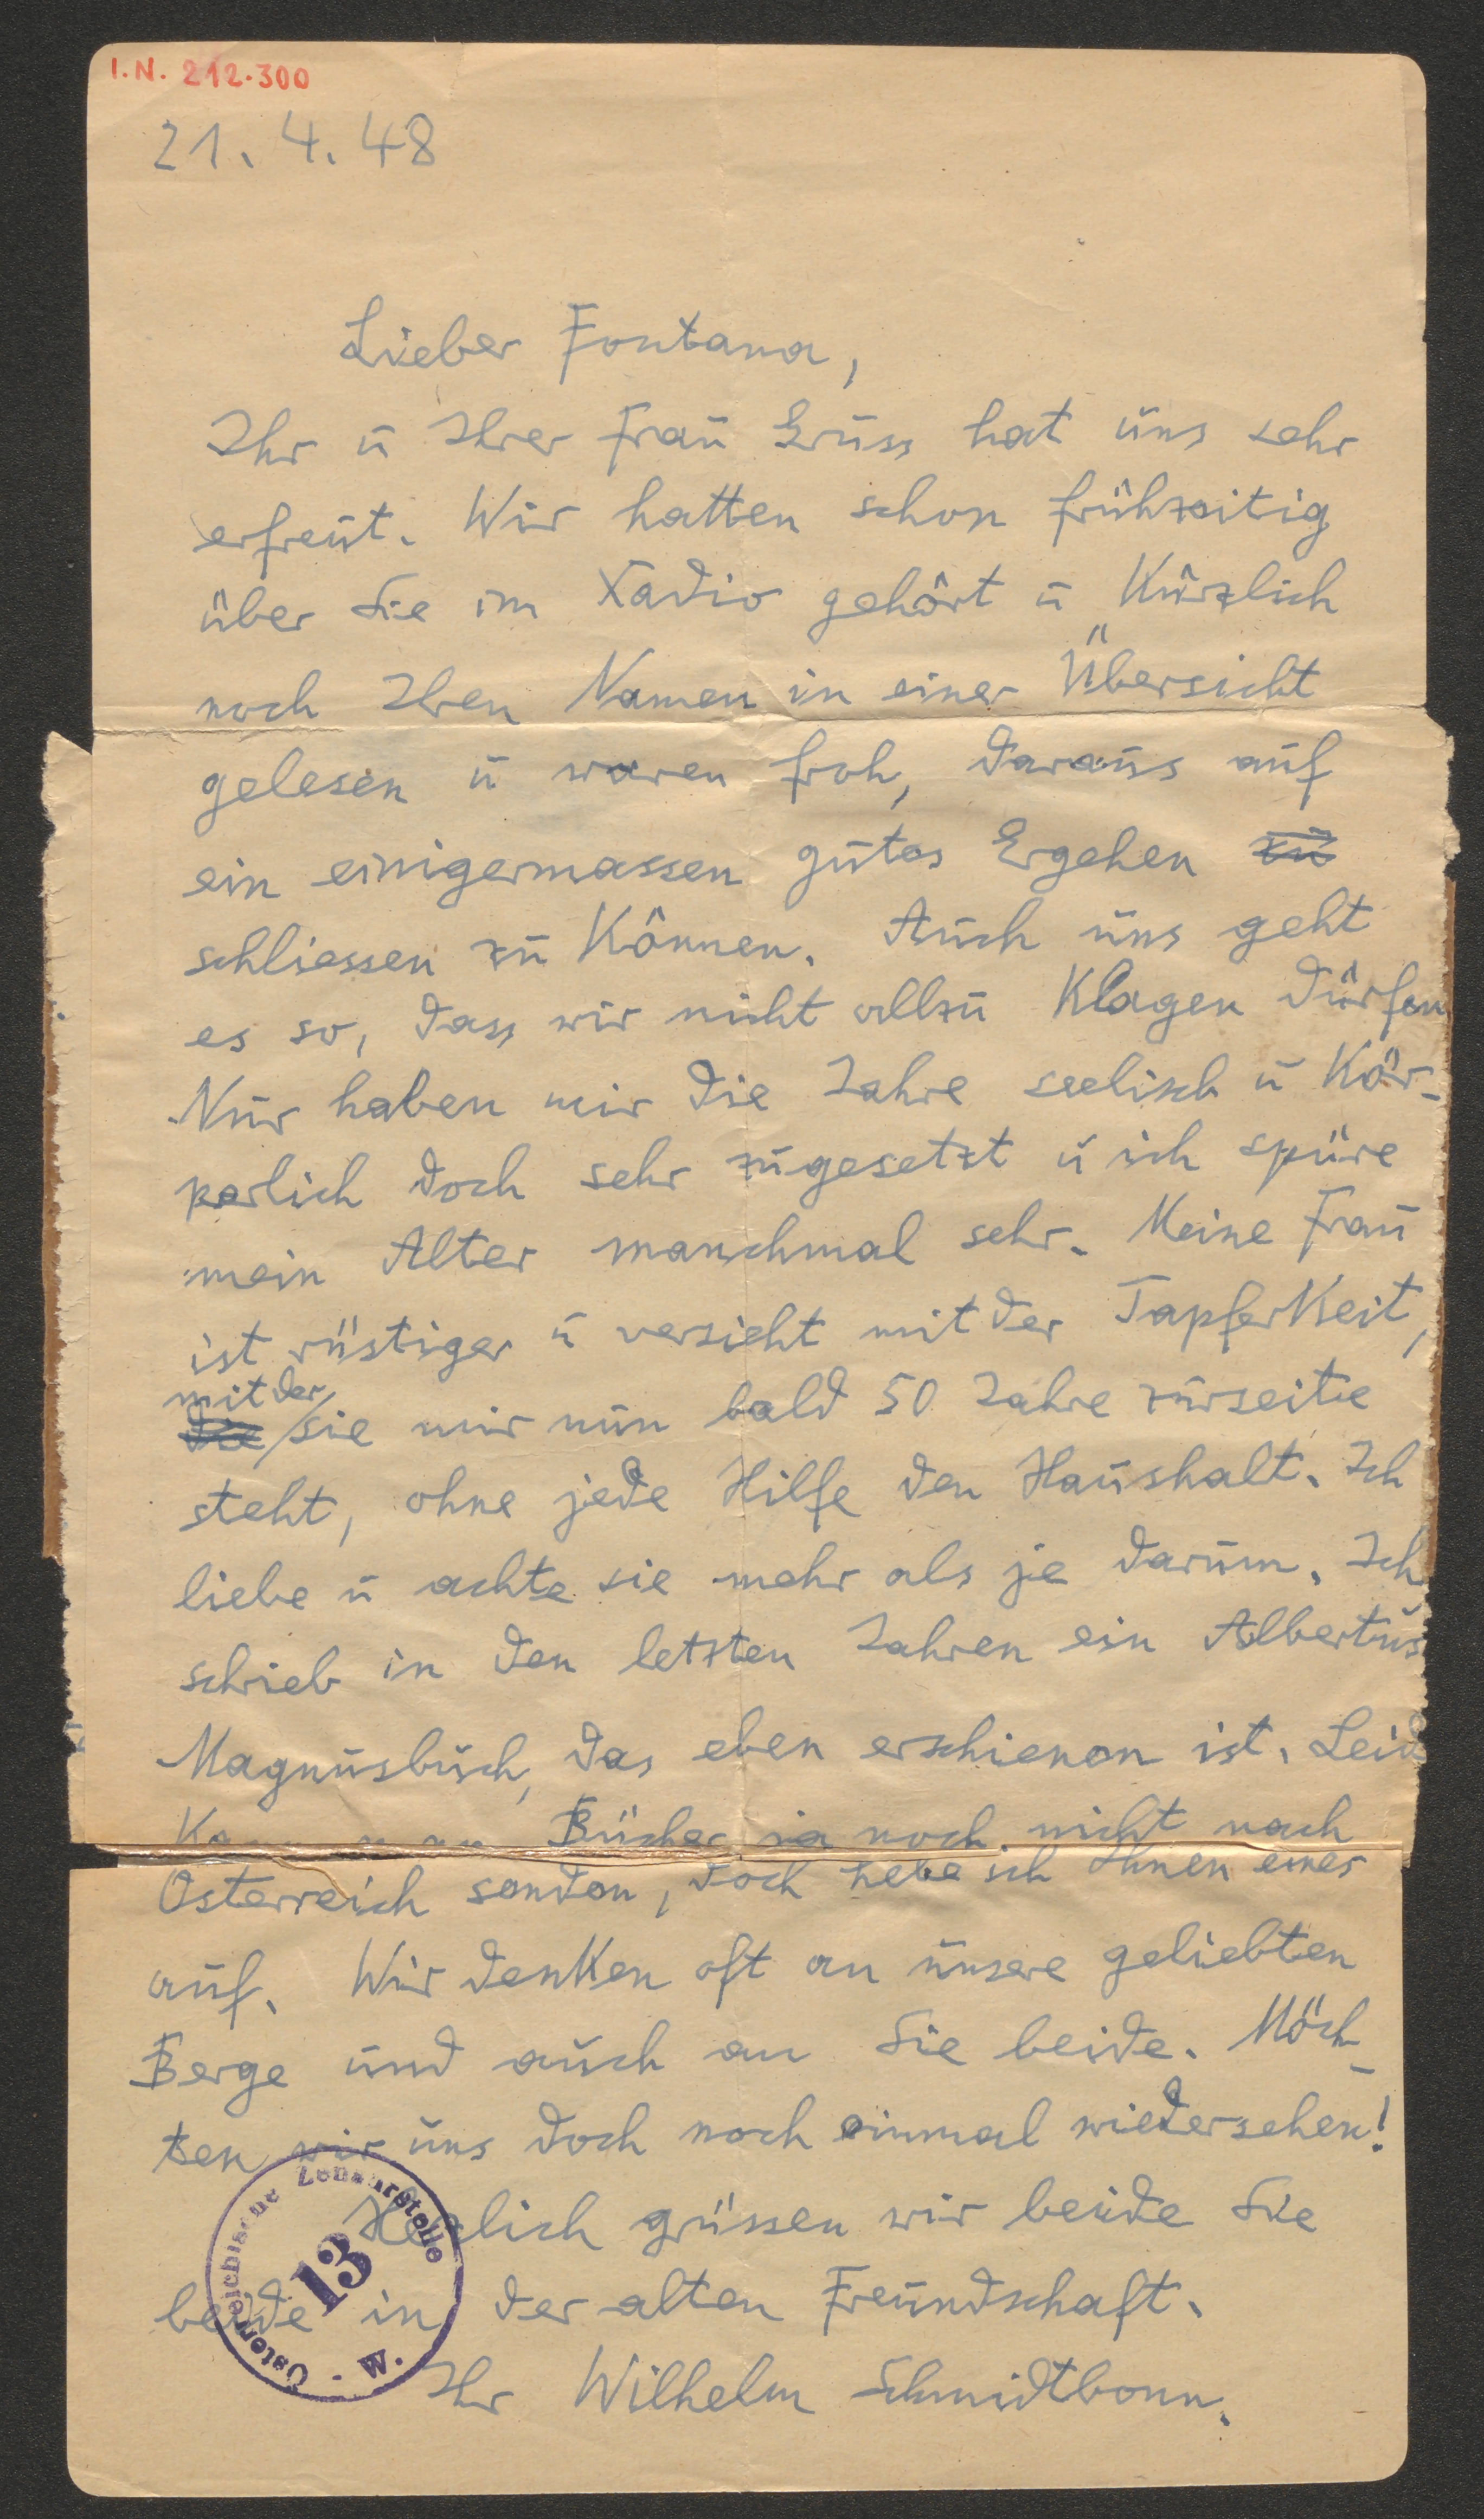 I.N. 212.300
21. 4. 48
Lieber Fontana,
Ihr u Ihrer Frau Gruss hat uns sehr
erfreut. Wir hatten schon frühzeitig
über Sie im Radio gehört u kürzlich
noch Ihren Namen in einer Übersicht
gelesen u waren froh, daraus auf
ein einigermassen gutes Ergehen zu
schliessen zu können. Auch uns geht
es so, dass wir nicht allzu klagen dürfen
Nur haben mir die Jahre seelisch u kör-
perlich doch sehr zugesetzt u ich spüre
mein Alter manchmal sehr. Meine Frau
ist rüstiger u versieht mit der Tapferkeit,
mit der
die sie mir nun bald 50 Jahre zurseite
steht, ohne jede Hilfe den Haushalt. Ich
liebe u achte sie mehr als je darum. Ich
schrieb in den letzten Jahren ein Albertus
Magnusbuch, das eben erschienen ist. Leid
Kann man Bücher ja noch nicht nach
Österreich senden, doch hebe ich Ihnen eines
auf. Wir denken oft an unsere geliebten
Berge und auch an Sie beide. Möch-
ten wir uns doch noch einmal wiedersehen!
Herzlich grüssen wir beide Sie
beide in der alten Freundschaft.
Ihr Wilhelm Schmidtbonn.
Österreichische Zensurstelle
13
W.